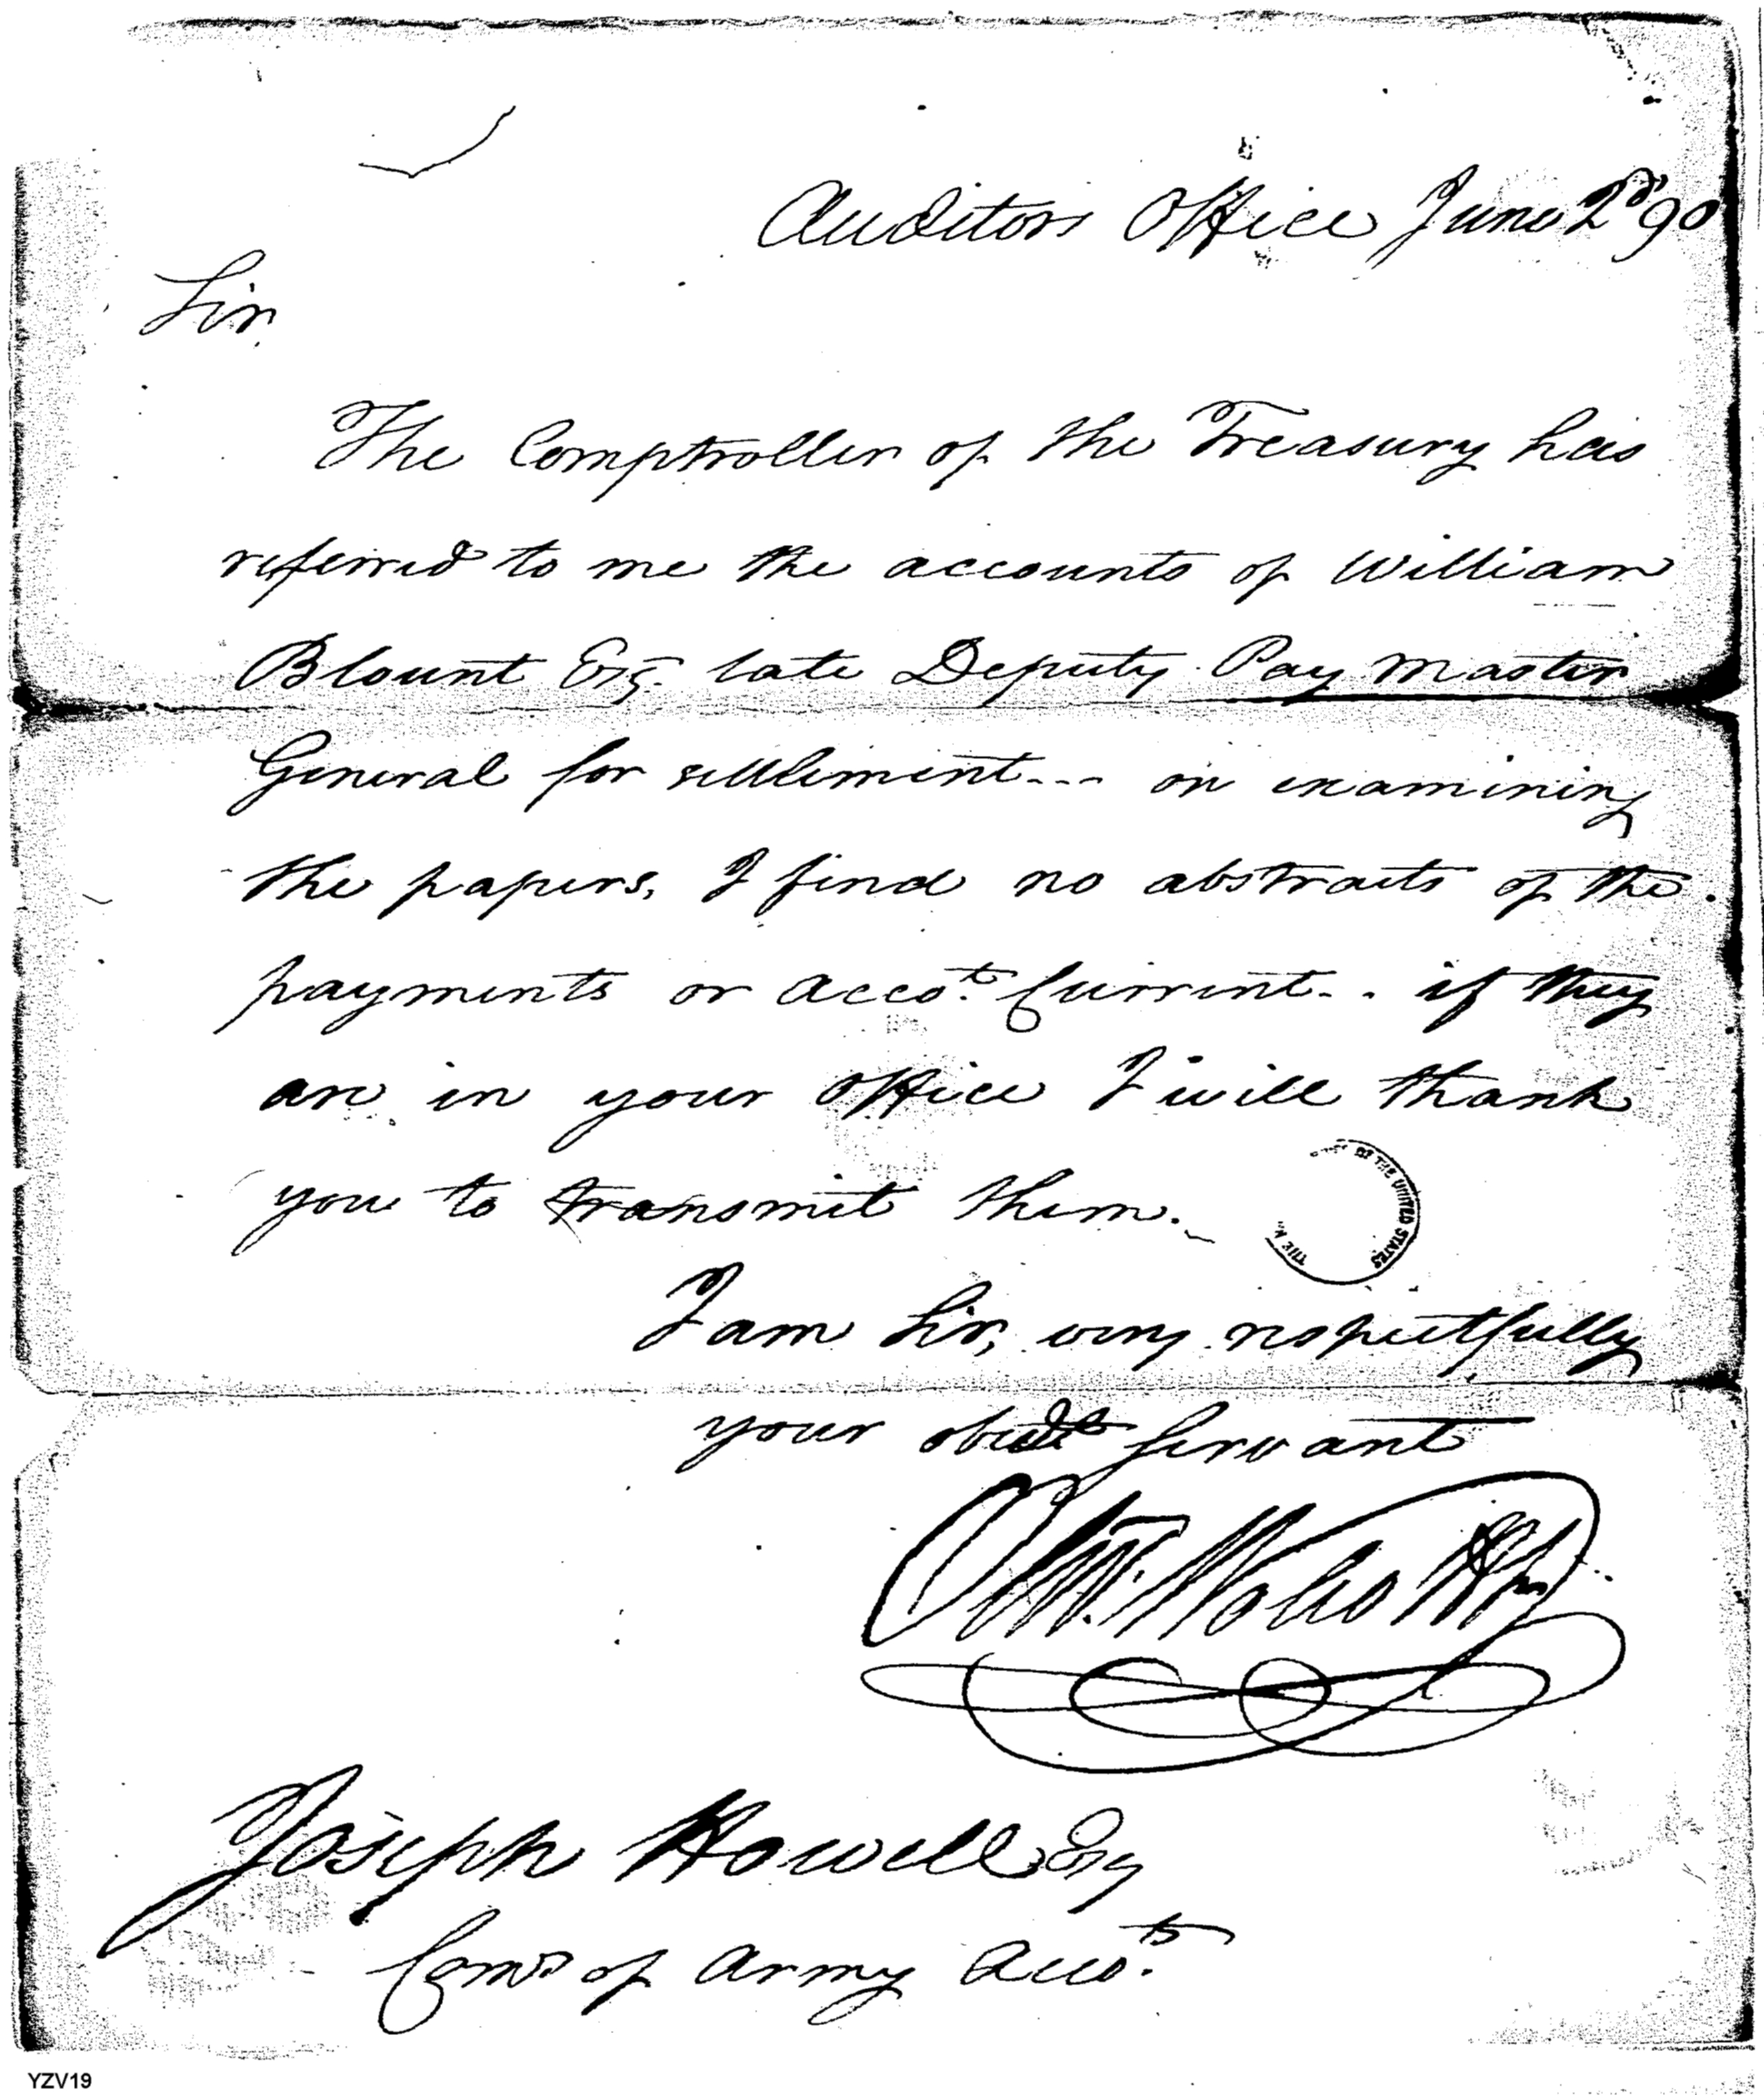 Auditors Office June 2d 90
Sir
The Comptroller of the Treasury has
referred to me the accounts of William
Blount Esq. late Deputy Pay Master
General for settlement--- on examining
the papers, I find no abstracts of the
payments or accot. Current-- if they
are in your office I will thank
you to transmit them.
OF THE UNITED STATES
THE
I am Sir, very respectfully
your obedt Servant
Olivr. Wolcott Jr
Joseph Howell Esq
Comr of Army Accots.
YZV19